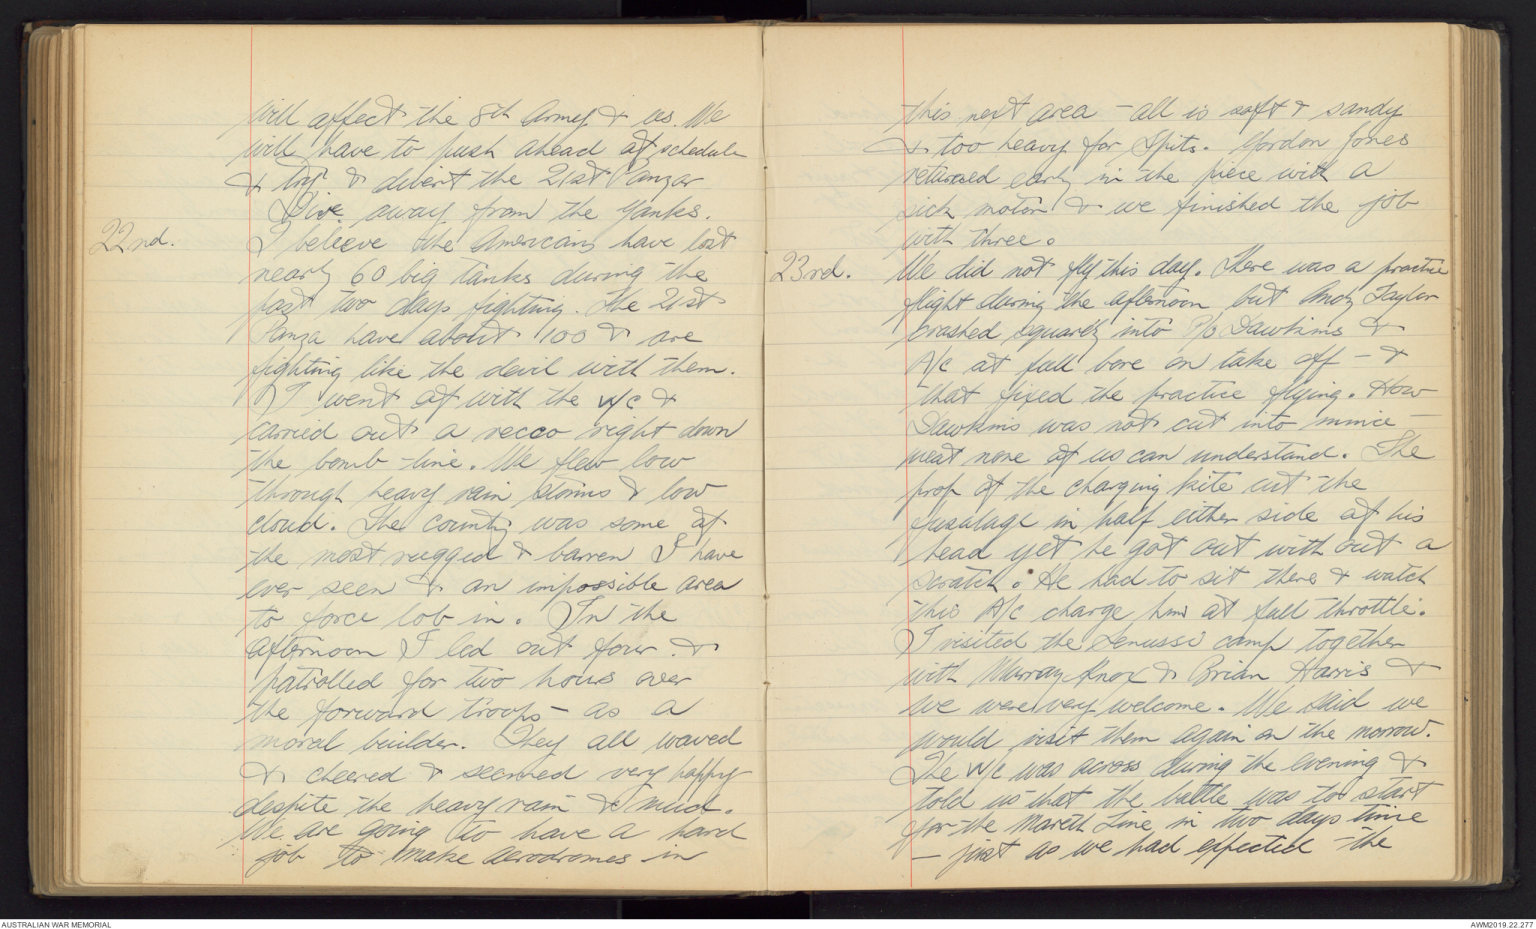 will affect the 8th Army & us. We
will have to push ahead of schedule
& try & divert the 21st Panzar
Divs. away from the Yanks.
22nd. I believe the Americans have lost
nearly 60 big tanks during the
past two days fighting. The 21st
Panza have about 100 & are
fighting like the devil with them.
I went off with the W/C &
carried out a recco right down
the bomb-line. We flew low
through heavy rain storms & low
cloud. The country was some of
the most rugged & barren I have
ever seen & an impossible area
to force lob in. In the
afternoon I led out four &
patrolled for two hours over
the forward troops - as a
moral builder. They all waved
& cheered & seemed very happy
despite the heavy rain & mud.
We are going to have a hard
job to make aerodromes in
this next area - all is soft & sandy
& too heavy for Spits. Gordon Jones
returned early in the piece with a
sick motor & we finished the job
with three.
23rd. We did not fly this day. There was a practice
flight during the afternoon but Andy Taylor
crashed squarely into P/O Dawkins &
A/C at full bore on take off - &
that fixed the practice flying. How
Dawkins was not cut into mince
meat none of us can understand. The
prop of the charging kite cut the
fusalage in half either side of his
head yet he got out with out a
scratch. He had to sit there & watch
this A/C charge him at full throttle.
I visited the Senussi camp together
with Murray Knox & Brian Harris &
we were very welcome. We said we
would visit them again on the morrow.
The W/C was across during the evening &
told us that the battle was to start
for the Mareth Line in two days time
- just as we had expected - the
AUSTRALIAN WAR MEMORIAL
AWM2019.22.277